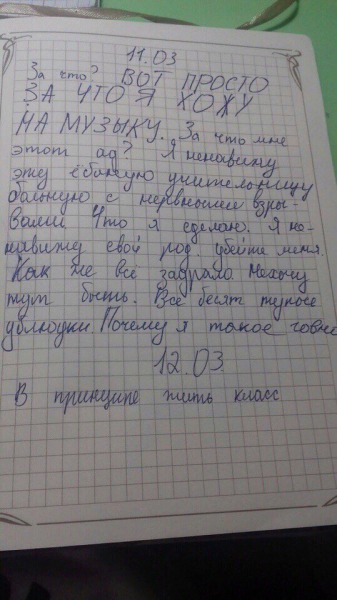 11.03
За что? ВОТ ПРОСТО
ЗА ЧТО Я ХОЖУ
НА МУЗЫКУ. За что мне
этот ад? Я ненавижу
эту ёбаную учительницу
больную с нервными взры-
вами Что я сделаю. Я не-
навижу свой род. убейте меня.
Как же всё задрало Нехочу
тут быть. Все бесят тупые
ублюдки Почему я такое говно
12.03.
В принципе жить класс